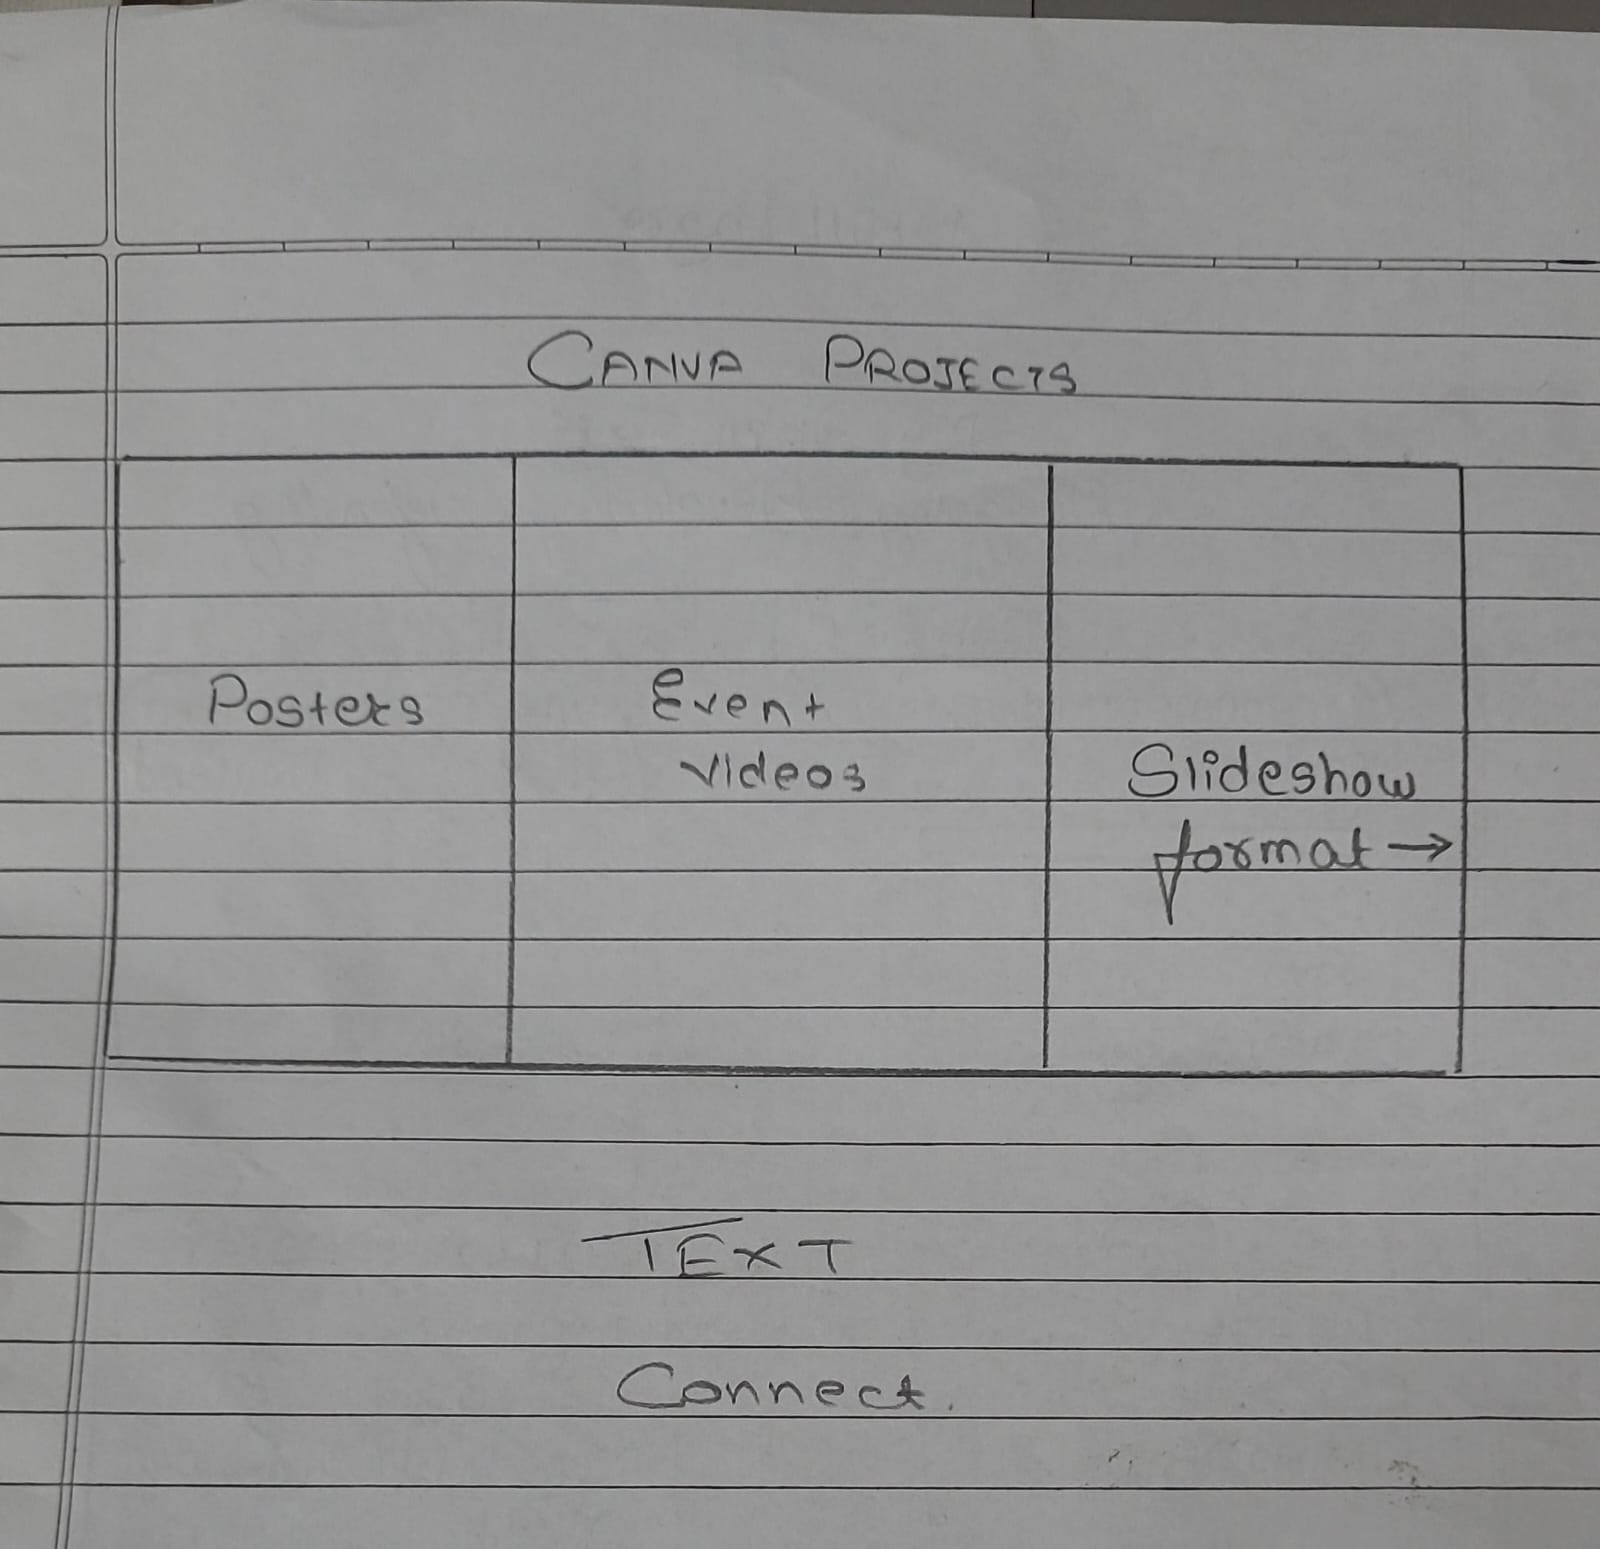 CANVA PROJECTS
Posters
Event
videos
Slideshow
format →
TEXT
Connect.